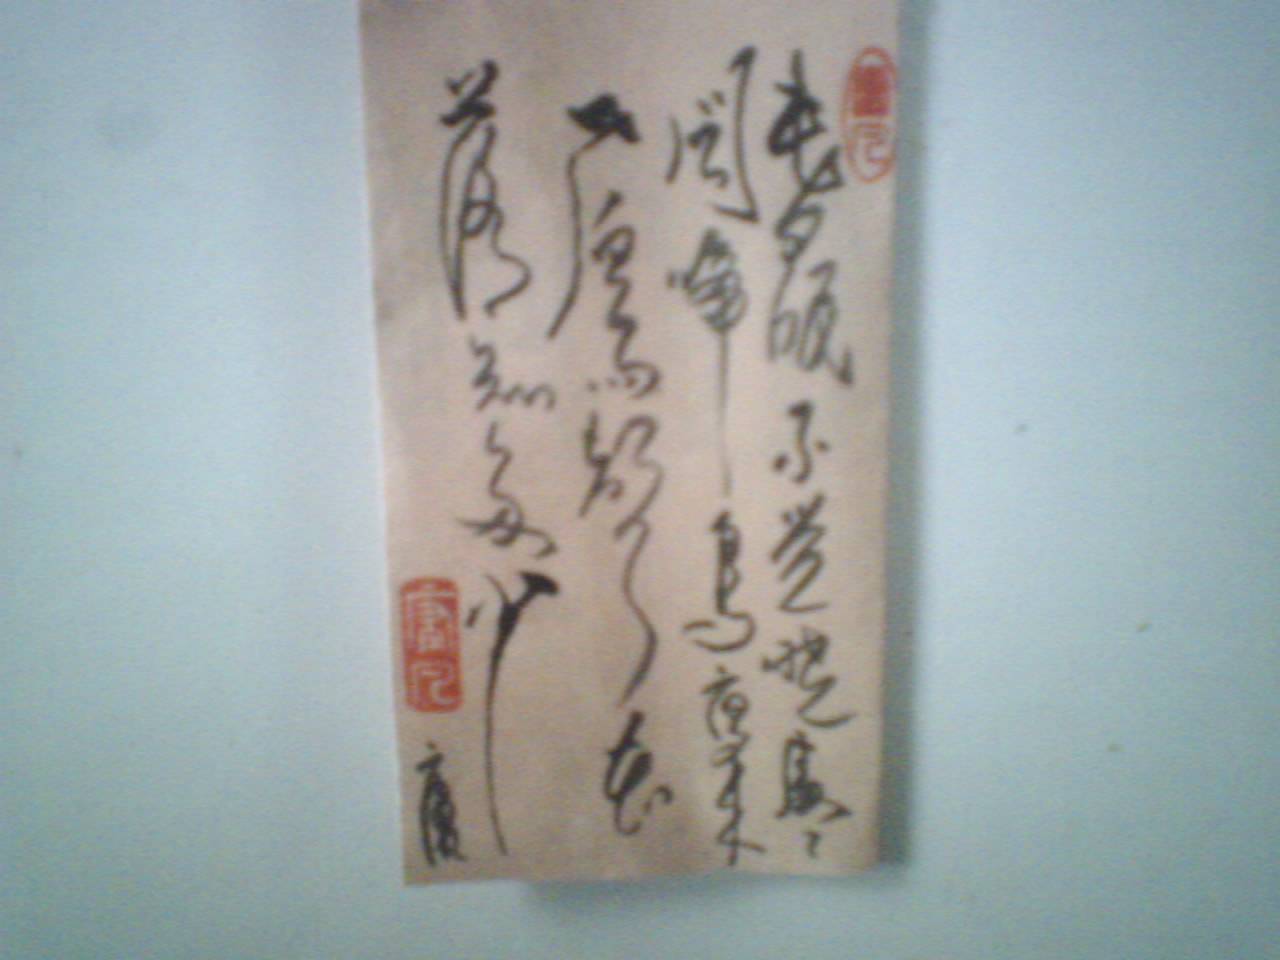 春眠不觉晓处々
闻啼鸟夜来
风雨声花
落知多少